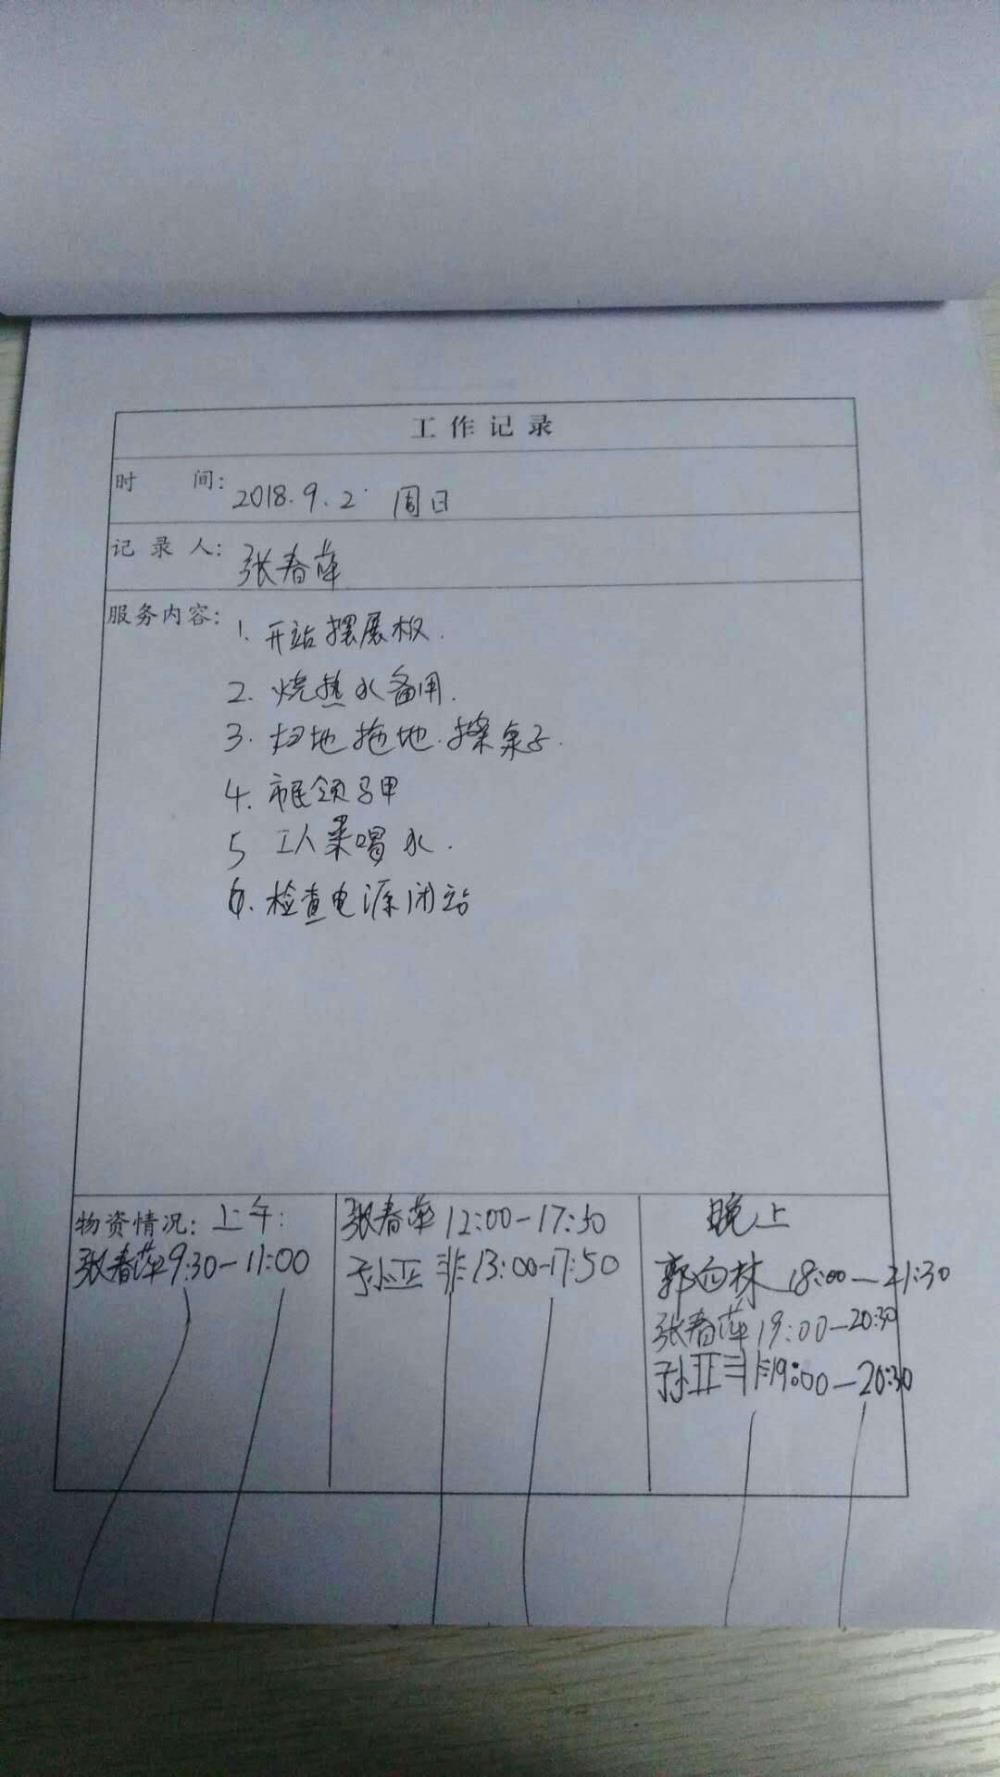 工作记录
时 间: 2018.9.2 周日
记录人: 张春萍
服务内容: 1. 开站摆展板.
2. 烧热水备用.
3. 扫地拖地.擦桌子.
4. 市民领马甲
5 工人来喝水.
6. 检查电源闭站
物资情况: 上午:
张春萍9:30-11:00
张春萍12:00-17:50
孙亚非13:00-17:50
晚上
郭向林 18:00-21:30
张春萍 19:00-20:30
孙亚非19:00-20:30